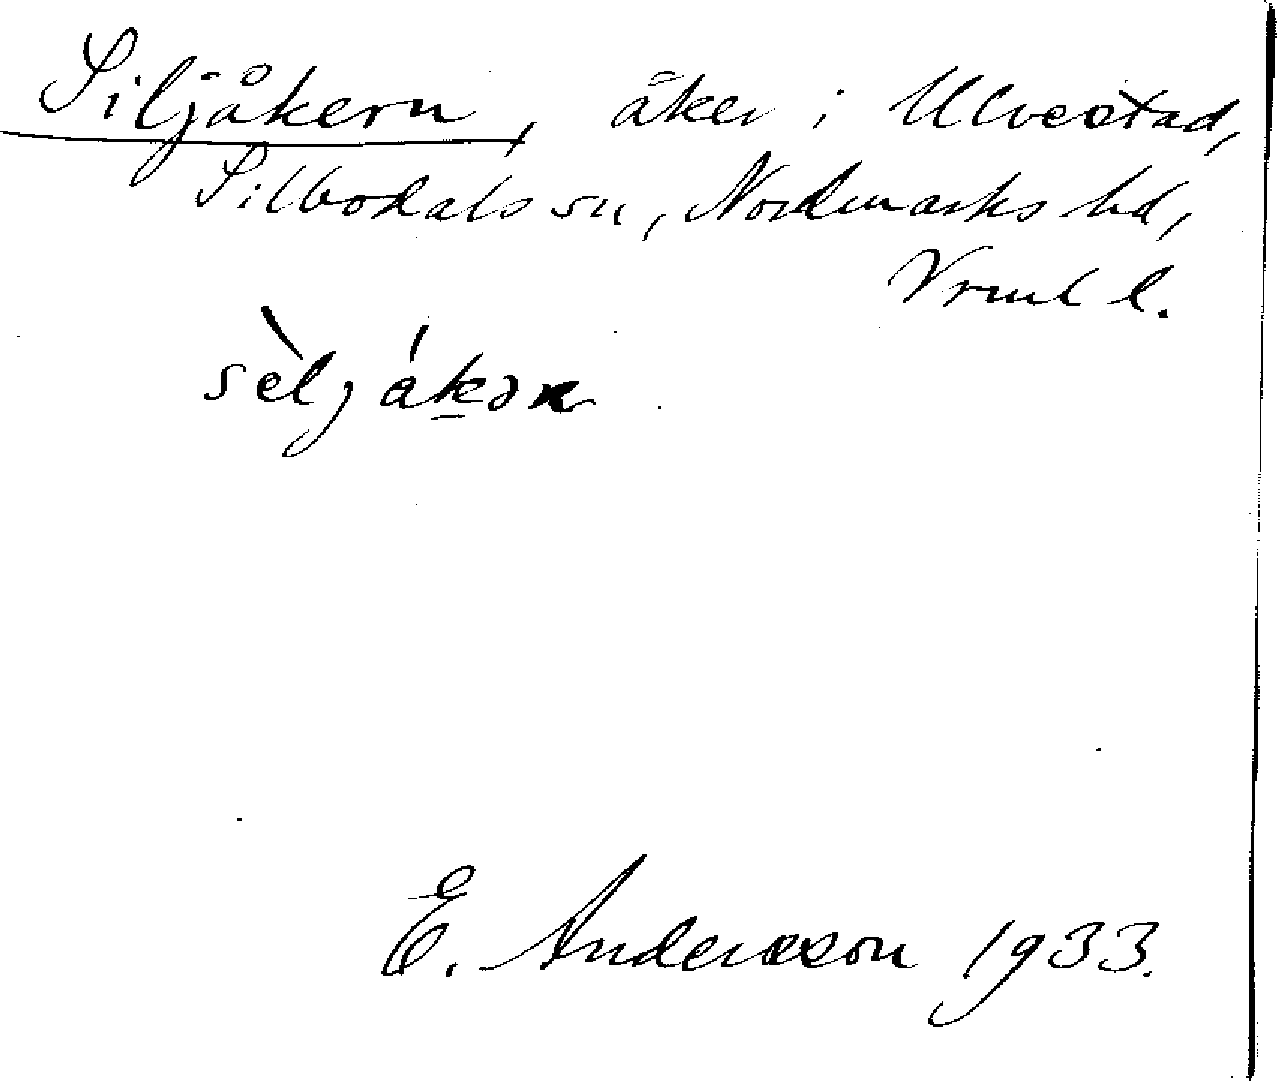 Siljåkern, åker i Ulvestad,
Silbodals sn, Nordmarks hd,
Vrml l.
sèljákən
E. Andersson 1933.